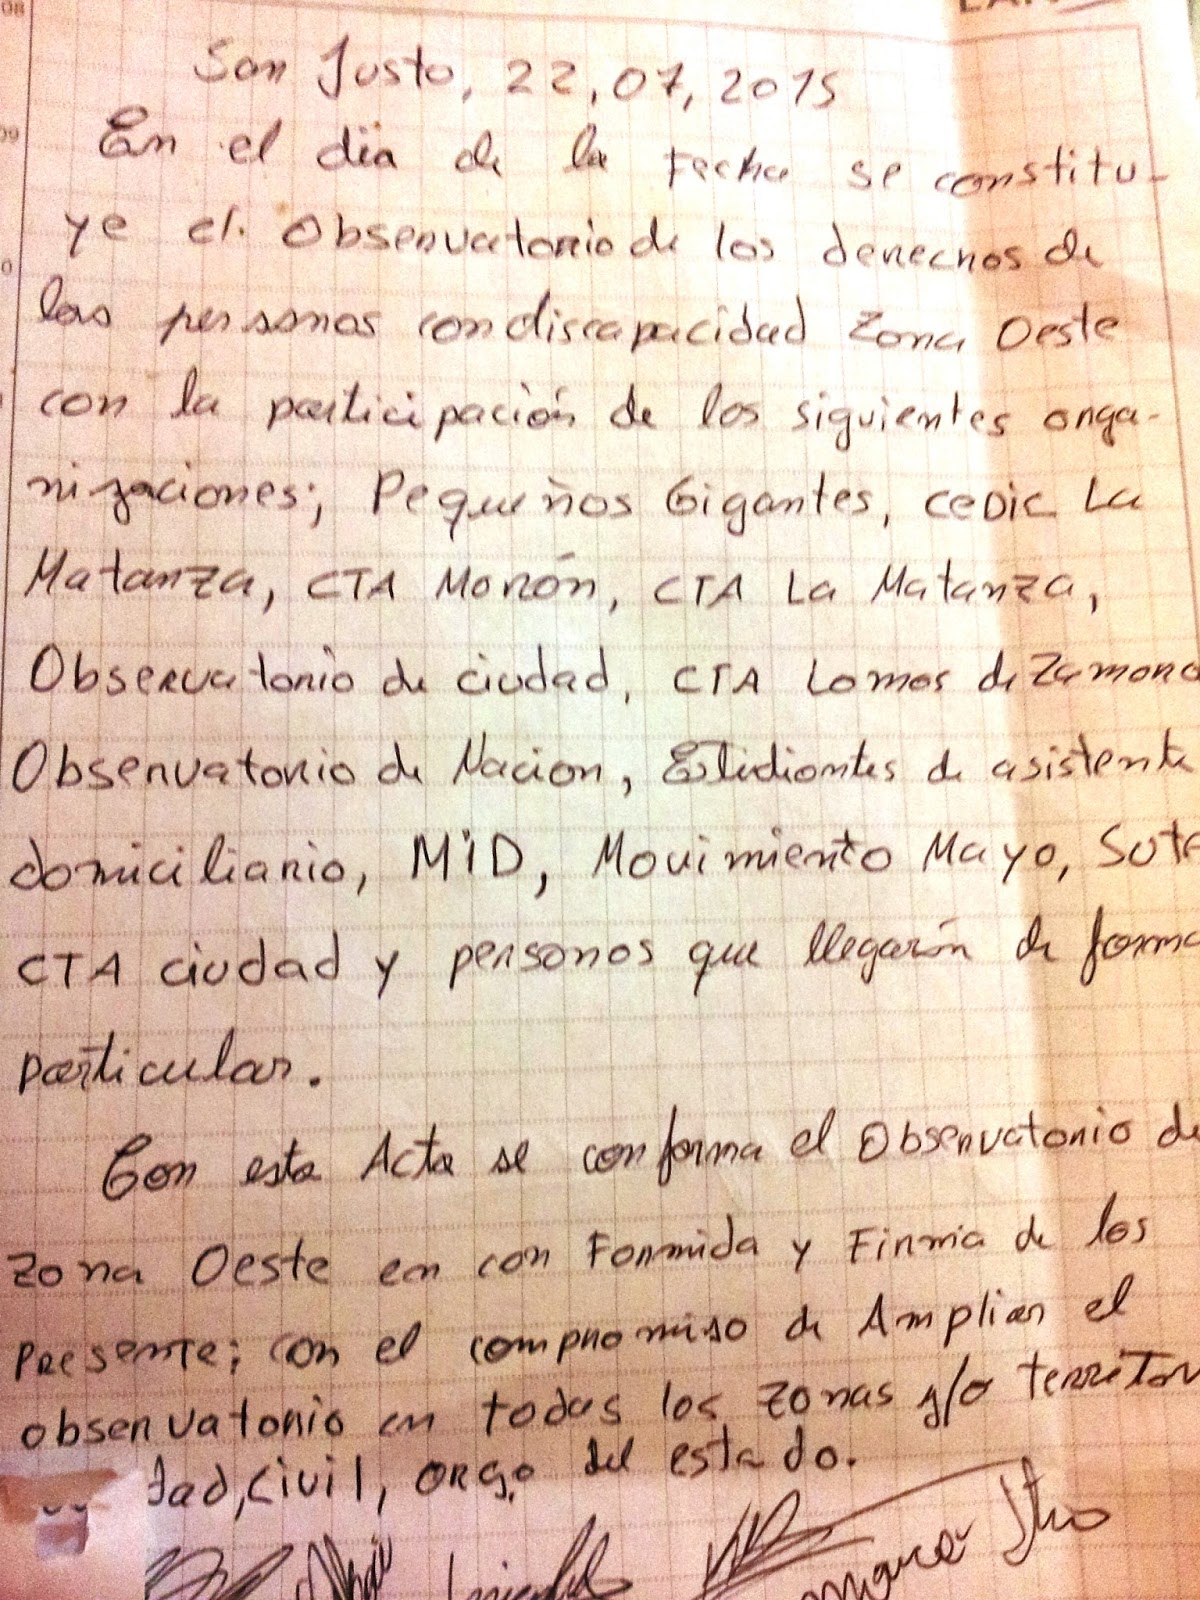 08
San Justo, 22,07,2015
09
En el dia de la Fecha se constitu-
ye el Observatorio de los derechos de
0
las personas con discapacidad Zona Oeste
con la participación de los siguientes orga-
nizaciones; Pequeños Gigantes, CEDIC La
Matanza, CTA Morón, CTA La Matanza,
Observatorio de ciudad, CTA Lomas de Zamora
Observatorio de Nacion, Estudiantes de asistente
domiciliario, MiD, Movimiento Mayo, Sute
CTA ciudad y personas que llegarón de forma
particular.
Con esta Acta se conforma el Observatorio de
Zona Oeste en con Formida y Firma de los
presente; con el compromiso de Ampliar el
observatorio en todas los zonas y/o territor
dad, civil, org. del estado.